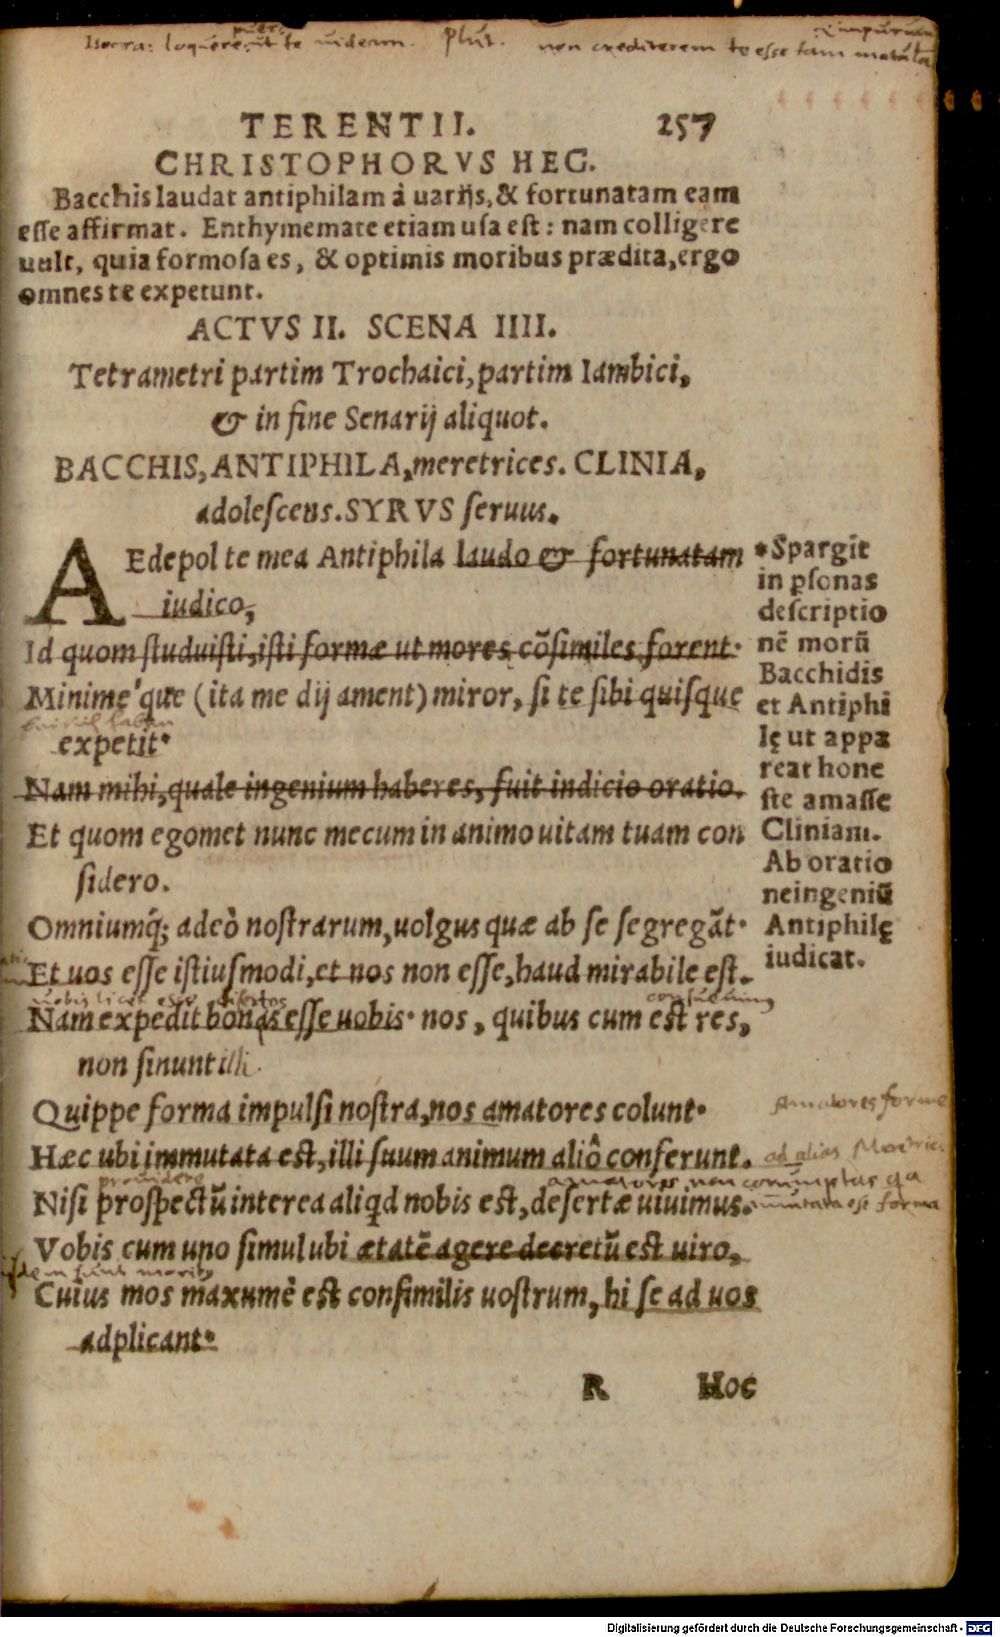 Isocra: loquere ut te uideam. Plut. non crediderem te esse tam
TERENTII. 257
CHRISTOPHORVS HEG.
Bacchis laudat antiphilam à uarijs, & fortunatam eam
esse affirmat. Enthymemate etiam usa est: nam colligere
uult, quia formosa es, & optimis moribus prædita, ergo
omnes te expetunt.
ACTVS II. SCENA IIII.
Tetrametri partim Trochaici, partim Iambici,
& in fine Senarij aliquot.
BACCHIS, ANTIPHILA, meretrices. CLINIA,
adolescens. SYRVS seruus.
AEdepol te mea Antiphila laudo & fortunatam
iudico,
Id quom studuisti, isti formæ ut mores cõsimiles forent.
Minime'que (ita me dij ament) miror, si te sibi quisque
expetit.
Nam mihi, quale ingenium haberes, fuit indicio oratio.
Et quom egomet nunc mecum in animo uitam tuam con
sidero.
Omniumq́; adeò nostrarum, uolgus quæ ab se segregãt.
Et uos esse istiusmodi, et nos non esse, haud mirabile est.
Nam expedit bonas esse uobis. nos, quibus cum est res,
non sinunt
Quippe forma impulsi nostra, nos amatores colunt.
Hæc ubi immutata est, illi suum animum aliô conferunt.
prouidere
Nisi prospectũ interea aliqd nobis est, desertæ uiuimus.
Vobis cum uno simul ubi ætatẽ agere decretũ est uiro,
Cuius mos maxumè est consimilis uostrum, hi se ad uos
adplicant.
R Hoc
*Spargit
in psonas
descriptio
nẽ morũ
Bacchidis
et Antiphi
lę ut appa
reat hone
ste amasse
Cliniam.
Ab oratio
ne ingeniũ
Antiphilę
iudicat.
Amatores forme
ad alias
immutata est forma
Digitalisierung gefördert durch die Deutsche Forschungsgemeinschaft - DFG